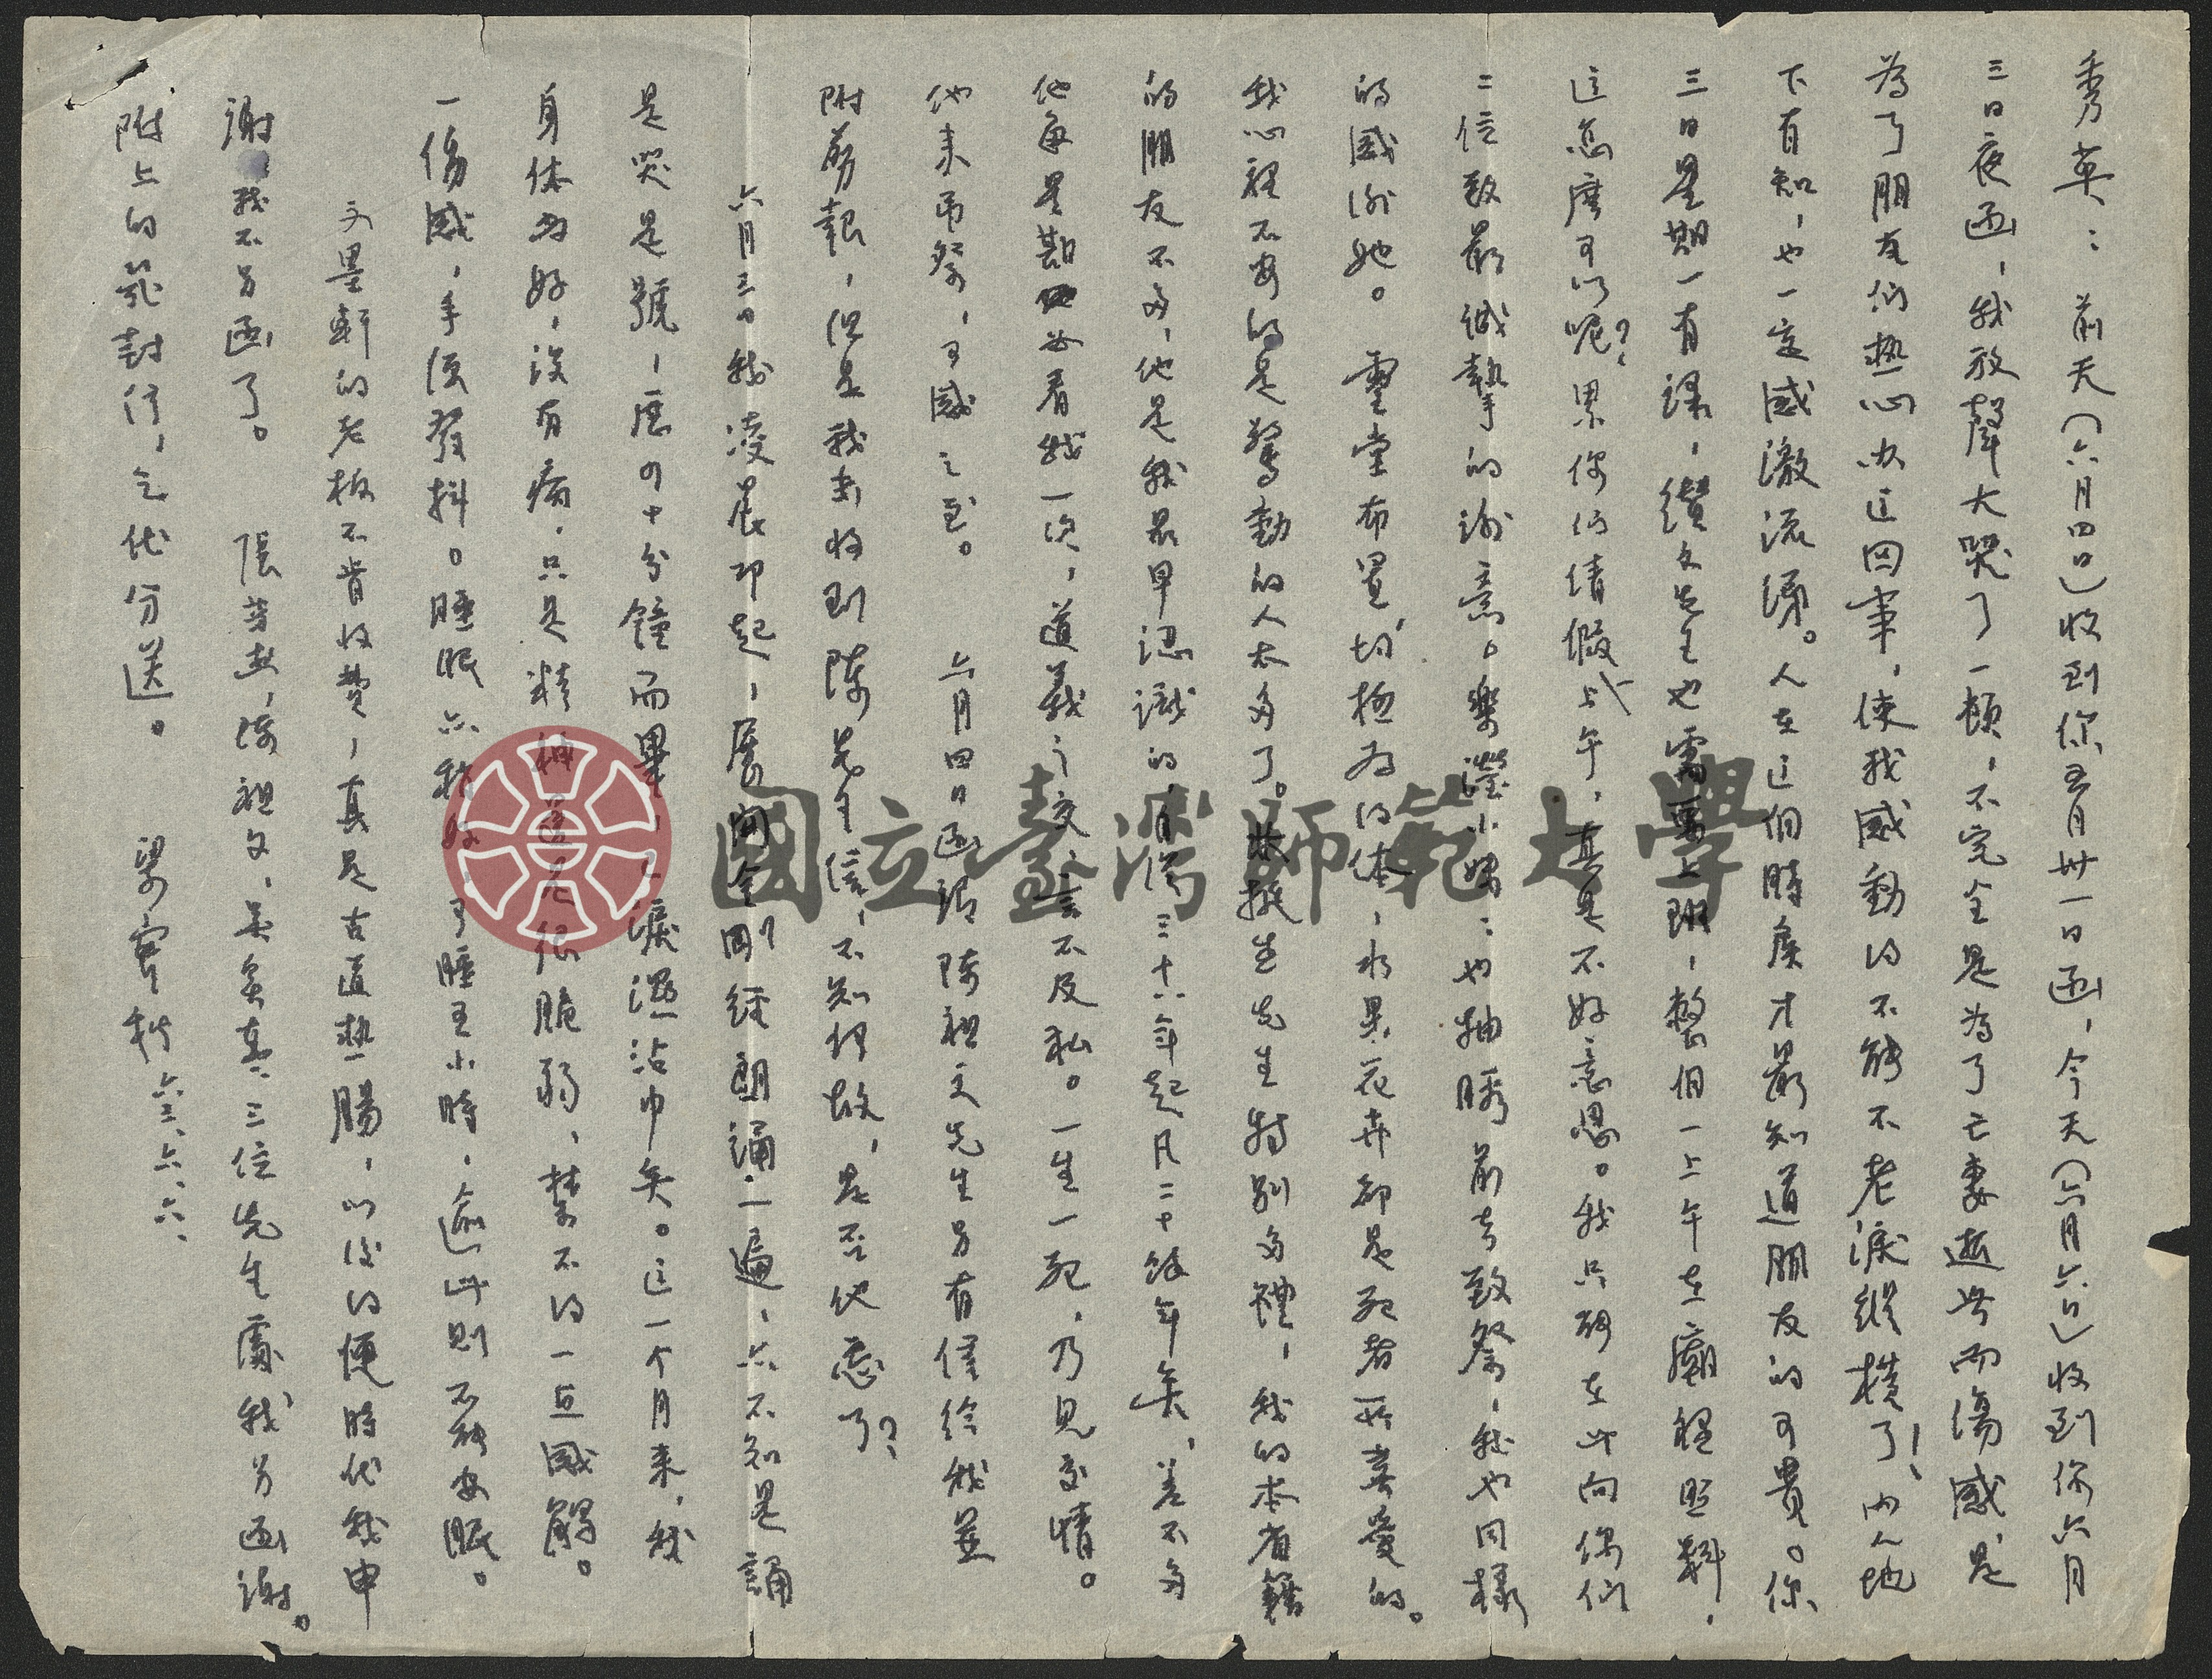 秀英：前天（六月四日）收到你五月卅一日函，今天（六月六日）收到你六月
三日夜函，我放聲大哭了一頓，不完全是為了亡妻逝世而傷感，是
為了朋友们热心办这回事，使我感動的不能不老淚縱橫了！内人地
下有知，也一定感激流涕。人在这個時候才最知道朋友的可貴。你
三日星期一有課，缵文先生也需要上班，整個一上午在廟裡照料，
这怎麼可以呢？累你们倩假上午，真是不好意思。我只能在此向你们
二位致最誠摯的謝意。樂瀅小姐：也抽暇前去致祭，我也同樣
的感謝她。靈堂布置，均極為得体，水果花卉都是死者所喜愛的。
我心裡不安的是驚動的人太多了。林挺生先生特别多禮，我的本省籍
的朋友不多，他是我最早認識的，自從三十八年起凡二十餘年矣，差不多
他每星期必看我一次，道義之交，言不及私。一生一死，乃見交情。
他来弔祭，可感之至。六月四日函說陳祖文先生另有信给我並
附剪報，但是我未收到陳先生信，不知何故，是否他忘了？
六月三日我凌晨即起，展開金剛經朗誦一遍，亦不知是誦
是哭是號，歷四十分鐘而畢，淚濕沾巾矣。这一个月来，我
身体尚好，没有病，只是精神還是很脆弱，禁不得一点感觸。
一傷感，手便發抖。睡眠亦称好，可睡五小時，逾此則不能安眠。
文墨軒的老板不肯收费，真是古道热腸，以後得便時代我申
謝，我不另函了。張芳杰，陳祖文，吳奚真三位先生處，我另函謝。
附上的几封信，乞代分送。梁實秋 六三、六、六、
國立臺灣師範大學